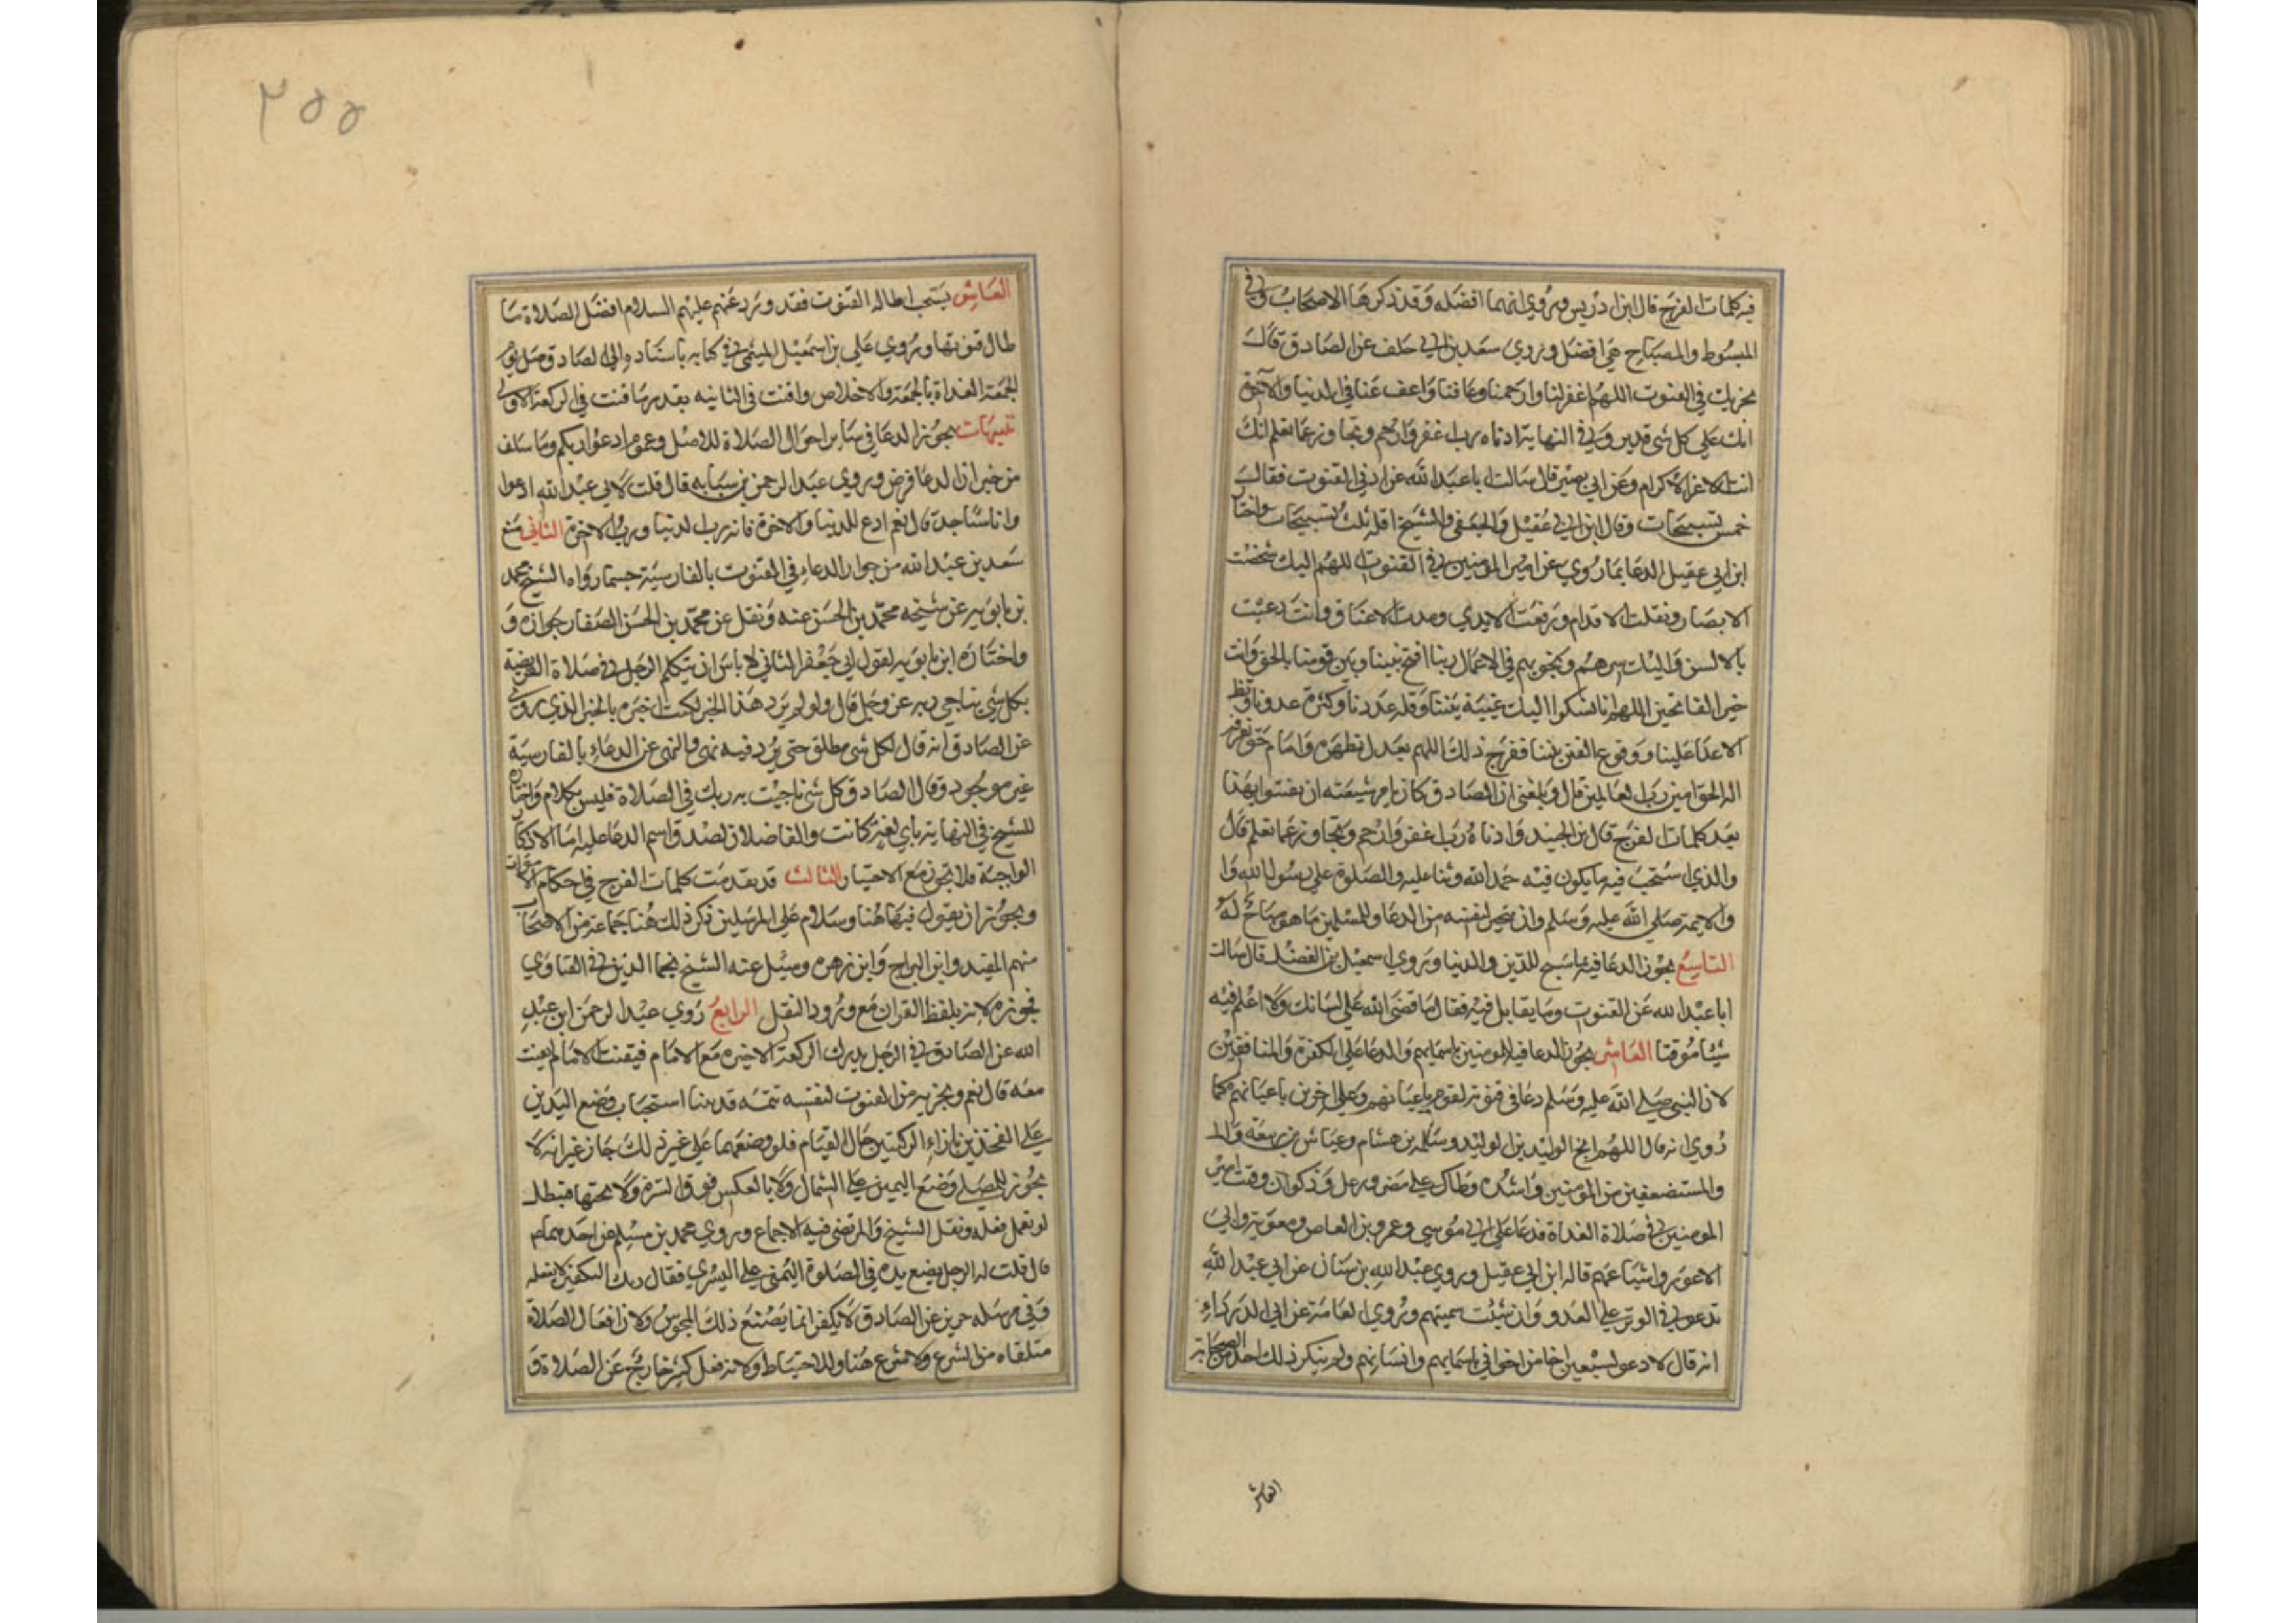 فيه كلمات الفرج قال ابن ادريس وروي انهما افضله وقد ذكرها الاصحاب وفي
المبسوط والمصباح هي افضل وروى سعد بن ابي خلف عن الصادق قال
يجزيك في القنوت اللهم اغفر لنا وارحمنا وعافنا واعف عنا في الدنيا والآخرة
انك على كل شي قدير وفي النهاية ادناه رب اغفر وارحم وتجاوز عما تعلم انك
انت الاعز الاكرم وعن ابي بصير قال سالت ابا عبد الله عن ادنى القنوت فقال
خمس تسبيحات وقال ابن ابي عقيل والجعفي والشيخ اقله ثلث تسبيحات واختار
ابن ابي عقيل الدعا بما روي عن امير المؤمنين في القنوت اللهم اليك شخصت
الابصار ونقلت الاقدام ورفعت الايدي ومدت الاعناق وانت دعيت
بالالسن واليك سرهم ونجويهم في الاعمال ربنا افتح بيننا وبين قومنا بالحق وانت
خير الفاتحين اللهم انا نشكوا اليك غيبة نبينا وقلة عددنا وكثرة عدونا وتظاهر
الاعدا علينا ووقوع الفتن بنا ففرج ذلك اللهم بعدل تظهره وامام حق تعرفه
اله الحق امين رب العالمين قال وبلغني ان الصادق كان يامر شيعته ان يقنتوا بهذا
بعد كلمات الفرج قال ابن الجنيد وادناه رب اغفر وارحم وتجاوز عما تعلم قال
والذي استحب فيه ما يكون فيه حمد الله وثنا عليه والصلوة على رسول الله وا
والايمة صلى الله عليه وسلم وان يتخير لنفسه من الدعا وللمسلمين ما هو مباح له
التاسع يجوز الدعا فيه بما سبح للدين والدنيا وروي اسمعيل بن الفضل قال سالت
ابا عبد الله عن القنوت وما يقال فيه فقال ما قضى الله على لسانك ولا اعلم فيه
شيئا موقتا العاشر يجوز الدعا فيه للمومنين باسمايهم والدعا على الكفرة والمنافقين
لان النبي صلى الله عليه وسلم دعا في قنوته لقوم باعيانهم وعلى اخرين باعيانهم كما
روي انه قال اللهم انج الوليد بن الوليد وسلمة بن هشام وعياش بن ربيعة والم
والمستضعفين من المؤمنين واشدد وطاك على مضر ورعل وذكوان وقنت امير
المومنين في صلاة الغداة فدعا على ابي موسى وعمرو بن العاص ومعوية وابي
الاعور واشياعهم قاله ابن ابي عقيل وروي عبد الله بن سنان عن ابي عبد الله
تدعو في الوتر على العدو وان شئت سميتهم وروي العامة عن ابي الدرداء
انه قال لادعو لسبعين اخا من اخواني باسمايهم وانسابهم ولم ينكر ذلك احد من الصحابة
العاشر
٢٥٥
العاشر يستحب اطالة القنوت فقد ورد عنهم عليهم السلام افضل الصلاة ما
طال قنوتها وروي علي بن اسمعيل الميثمي في كتابه باسناده الى الصادق صل يوم
الجمعة الغداة بالجمعة والاخلاص واقنت في الثانية بقدر ما قنت في الركعة الاولى
تنبيهات يجوز الدعا في ساير احوال الصلاة للاصل وعموم ادعوا ربكم وما سلف
من خبر ان الدعا فرض وروي عبد الرحمن بن سيابه قال قلت لابي عبد الله ادعوا
وانا ساجد قال نعم ادع للدنيا والاخرة فانه رب الدنيا ورب الاخرة الثاني منع
سعد بن عبد الله من جواز الدعاء في القنوت بالفارسية حسما رواه الشيخ محمد
بن بابويه عن شيخه محمد بن الحسن عنه ونقل عن محمد بن الحسن الصفار جوازه و
واختاره ابن بابويه لقول ابي جعفر الثاني لا باس ان يتكلم الرجل في صلاة الفريضة
بكل شي يناجي به ربه عز وجل قال ولو لم يرد هذا الخبر لكنت اخبره بالخبر الذي روى
عن الصادق انه قال لكل شي مطلق حتى يرد فيه نهي والنهي عن الدعاء بالفارسية
غير موجود وقال الصادق كل شي ناجيت به ربك في الصلاة فليس بكلام واختاره
للشيخ في النهاية باي لغة كانت والفاضلان لصدق اسم الدعا عليه اما الاذكار
الواجبة فلا تجوز مع الاختيار الثالث قد تقدمت كلمات الفرج في احكام الاموات
ويجوز ان يقول فيها هنا وسلام على المرسلين ذكر ذلك هنا جماعة من الاصحاب
منهم المفيد وابن البراج وابن زهره وسيل عنه الشيخ نجم الدين في الفتاوي
فجوزه لانه بلفظ القران مع ورود النقل الرابع روي عبد الرحمن ابن عبد
الله عن الصادق في الرجل يدرك الركعة الاخيره مع الامام فيقنت الامام ايقنت
معه قال نعم ويجزيه من القنوت لنفسه تتمه قد بينا استحباب وضع اليدين
على الفخذين بازاء الركبتين حال القيام فلو وضعهما على غير ذلك جاز غير انه لا
يجوز للمصلي وضع اليمين على الشمال ولا بالعكس فوق السرة ولا تحتها فتبطل
لو تعمل فعله ونقل الشيخ والمرتضى فيه الاجماع وروي محمد بن مسلم عن احدهما
قال قلت له الرجل يضع يده في الصلوة اليمنى على اليسرى فقال ذلك التكفير لا يفعله
وفي مرسله حريز عن الصادق لا يكفر انما يصنع ذلك المجوس ولان افعال الصلاة
متلقاه من الشرع ولا شرع هنا وللاحتياط ولانه فعل كثير خارج عن الصلاة و